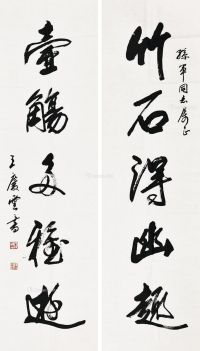 竹石得幽趣
孫軍同志屬正
壺觴多雅遊
王慶雲書